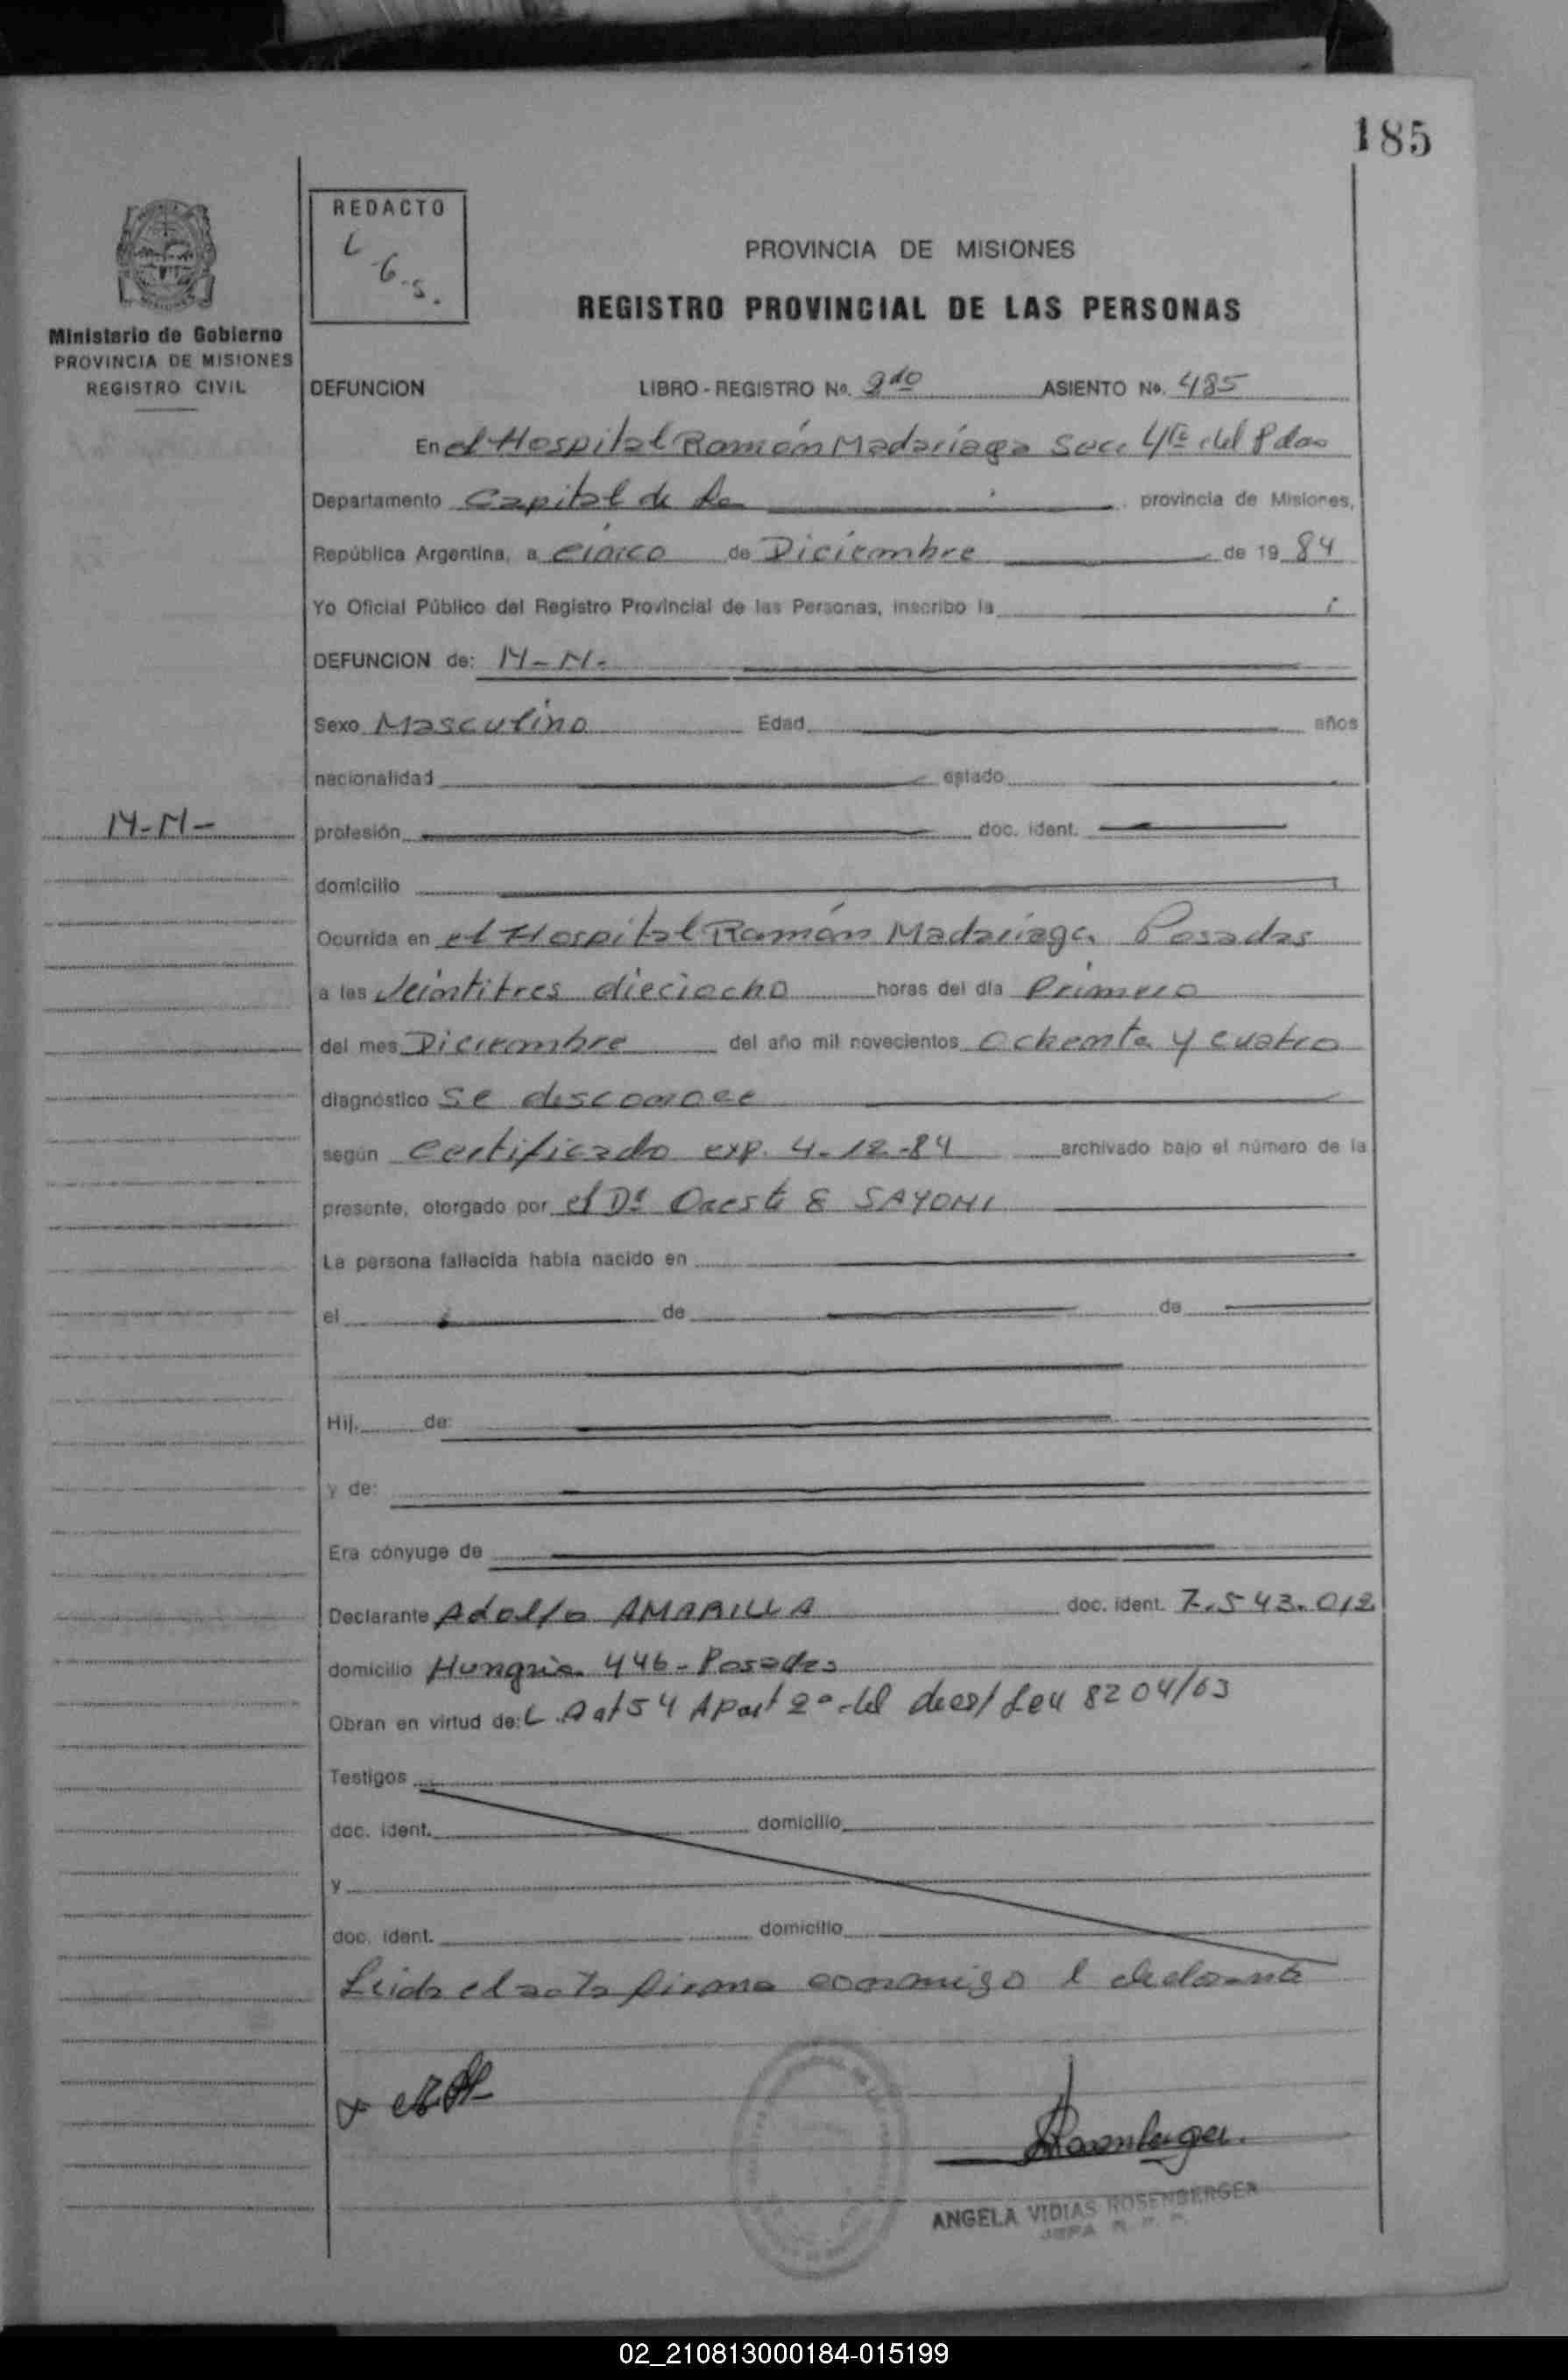 185
REDACTO
L
G.S.
Ministerio de Gobierno
PROVINCIA DE MISIONES
REGISTRO CIVIL
PROVINCIA DE MISIONES
REGISTRO PROVINCIAL DE LAS PERSONAS
DEFUNCION LIBRO - REGISTRO No. 2do ASIENTO No. 485
En el Hospital Ramón Madariaga Secc 4ta del
Departamento Capital de la provincia de Misiones,
República Argentina, a cinco de Diciembre de 19 84
Yo Oficial Público del Registro Provincial de las Personas, inscribo la
DEFUNCION de: N-N-
Sexo Masculino Edad años
nacionalidad estado
N-N-
profesión doc. ident.
domicilio
Ocurrida en el Hospital Ramón Madariaga Posadas
a las veintitres dieciocho horas del día Primero
del mes Diciembre del año mil novecientos ochenta y cuatro
diagnóstico se desconoce
según certificado exp. 4-12-84 archivado bajo el número de la
presente, otorgado por el Dr Oreste E SAYONI
La persona fallecida había nacido en
el de de
Hij. de:
y de:
Era cónyuge de
Declarante Adolfo AMARILLA doc. ident. 7.543.012
domicilio Hungria 446- Posadas
Obran en virtud de: L. A art 54 Apart 2º del decr/Ley 8204/63
Testigos
doc. ident. domicilio
y
doc. ident. domicilio
Leida el acta firma conmigo l declarante
ANGELA VIDIAS ROSENBERGER
JEFA R. P. P.
02_210813000184-015199